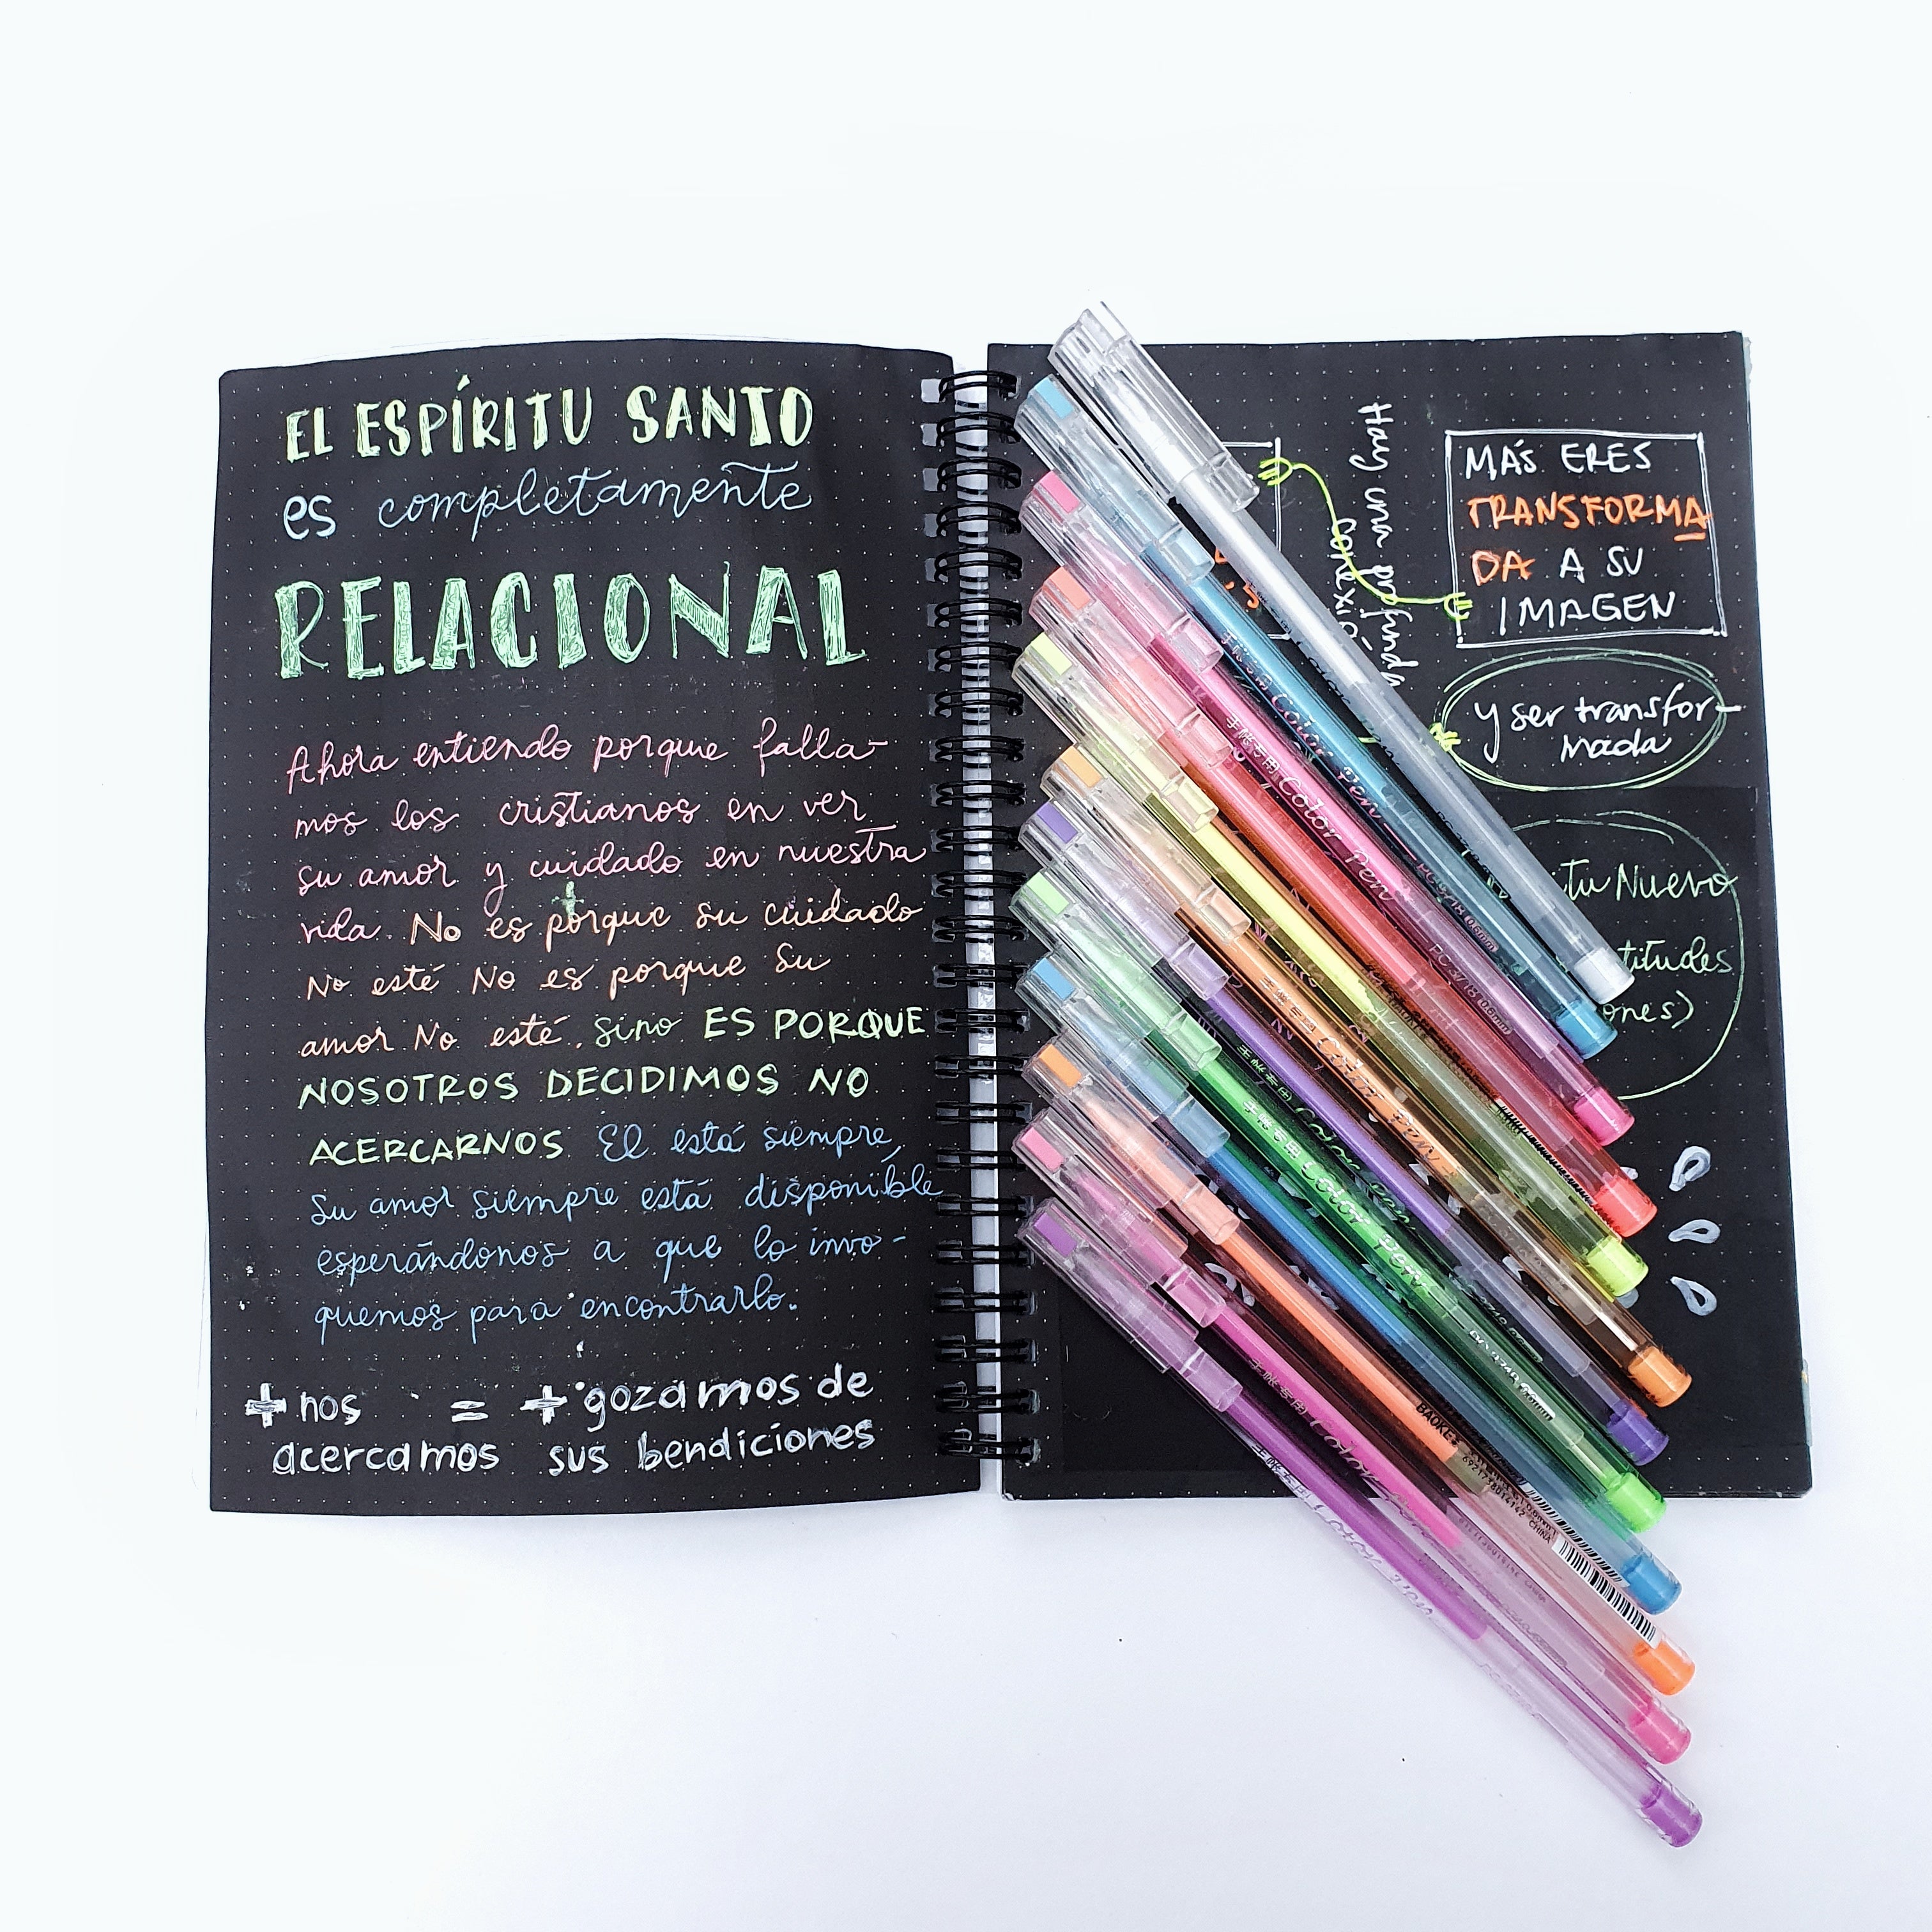 EL ESPÍRITU SANTO
es completamente
RELACIONAL
Ahora entiendo porque falla-
mos los cristianos en ver
su amor y cuidado en nuestra
vida. No es porque su cuidado
No esté No es porque su
amor No esté, sino ES PORQUE
NOSOTROS DECIDIMOS NO
ACERCARNOS El está siempre,
su amor siempre está disponible
esperándonos a que lo invo-
quemos para encontrarlo.
+ nos = + gozamos de
acercamos sus bendiciones
Hay una profunda
MÁS ERES
TRANSFORMA
DA A SU
IMAGEN
y ser transfor-
mada
tu Nuevo
titudes
ones)
Color Pen
Color Pen
Color Pen
Color Pen
BAOKE
6921738014142 CHINA